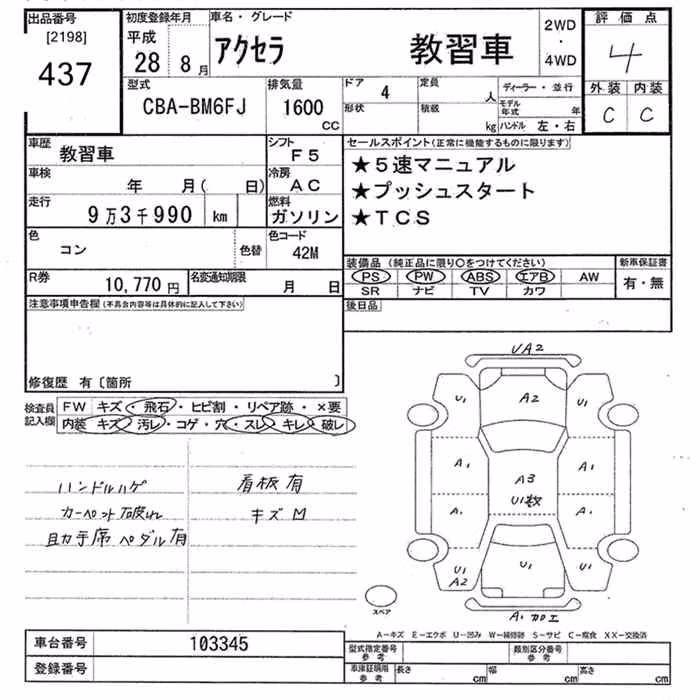 出品番号 初度登録年月 車名・グレード 2WD・4WD 評価点
[2198] 437 平成 28 8月 アクセラ 教習車 4
型式 排気量 ドア 4 定員 人 ディーラー・並行 外装 内装
CBA-BM6FJ 1600 CC 形状 積載 kg モデル年式 年 ハンドル 左・右 C C
車歴 教習車 シフト F5 セールスポイント(正常に機能するものに限ります)
車検 年 月( 日) 冷房 AC ★5速マニュアル
走行 9万3千990 km 燃料 ガソリン ★プッシュスタート
★TCS
色 コン 色替 色コード 42M
装備品(純正品に限り○をつけてください) 新車保証書
PS PW ABS エアB AW 有・無
SR ナビ TV カワ
R券 10,770円 名変通知期限 月 日
注意事項申告欄(不具合内容等は具体的に記入して下さい) 後日品
修復歴 有〔箇所 〕
検査員記入欄 FW キズ・飛石・ヒビ割・リペア跡・×要
内装 キズ・汚レ・コゲ・穴・スレ・キレ・破レ
ハンドルハゲ 看板有
カーペット破れ キズM
助手席ペダル有
UA2
U1 A2 U1
A1 A3 A1
U1数
A1 A1
U1 A2 U1 U1
A1 加工
スペア
A-キズ E-エクボ U-凹み W-補修跡 S-サビ C-腐食 XX-交換済
車台番号 103345 型式指定番号 参考 類別区分番号 参考
登録番号 車庫証明用 参考 長さ cm 幅 cm 高さ cm